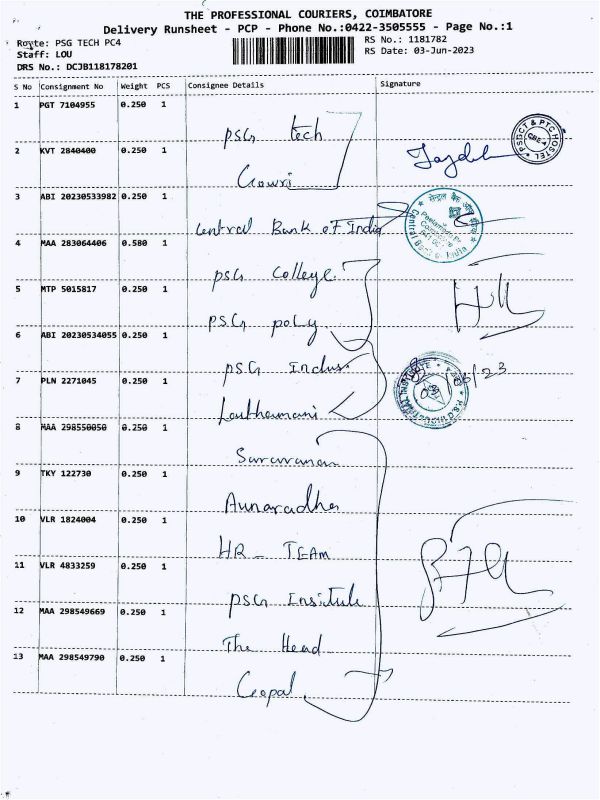 THE PROFESSIONAL COURIERS, COIMBATORE
Delivery Runsheet - PCP - Phone No.:0422-3505555 - Page No.:1
Route: PSG TECH PC4
RS No.: 1181782
Staff: LOU
RS Date: 03-Jun-2023
DRS No.: DCJB118178201
S No Consignment No Weight PCS Consignee Details Signature
1 PGT 7104955 0.250 1
psg tech
2 KVT 2840400 0.250 1
Gowri
PSGCT & PTC HOSTEL
CBE-4
3 ABI 20230533982 0.250 1
Central Bank of India
सेन्ट्रल बैंक ऑफ इंडिया
Central Bank of India
4 MAA 283064406 0.580 1
psg College
5 MTP 5015817 0.250 1
psg poly
6 ABI 20230534055 0.250 1
psg Indus.
7 PLN 2271045 0.250 1
8 MAA 298550050 0.250 1
Saravanan
9 TKY 122730 0.250 1
Aunaradha
10 VLR 1824004 0.250 1
HR - TEAM
11 VLR 4833259 0.250 1
psg Insitute
12 MAA 298549669 0.250 1
The Head
13 MAA 298549790 0.250 1
Gopal